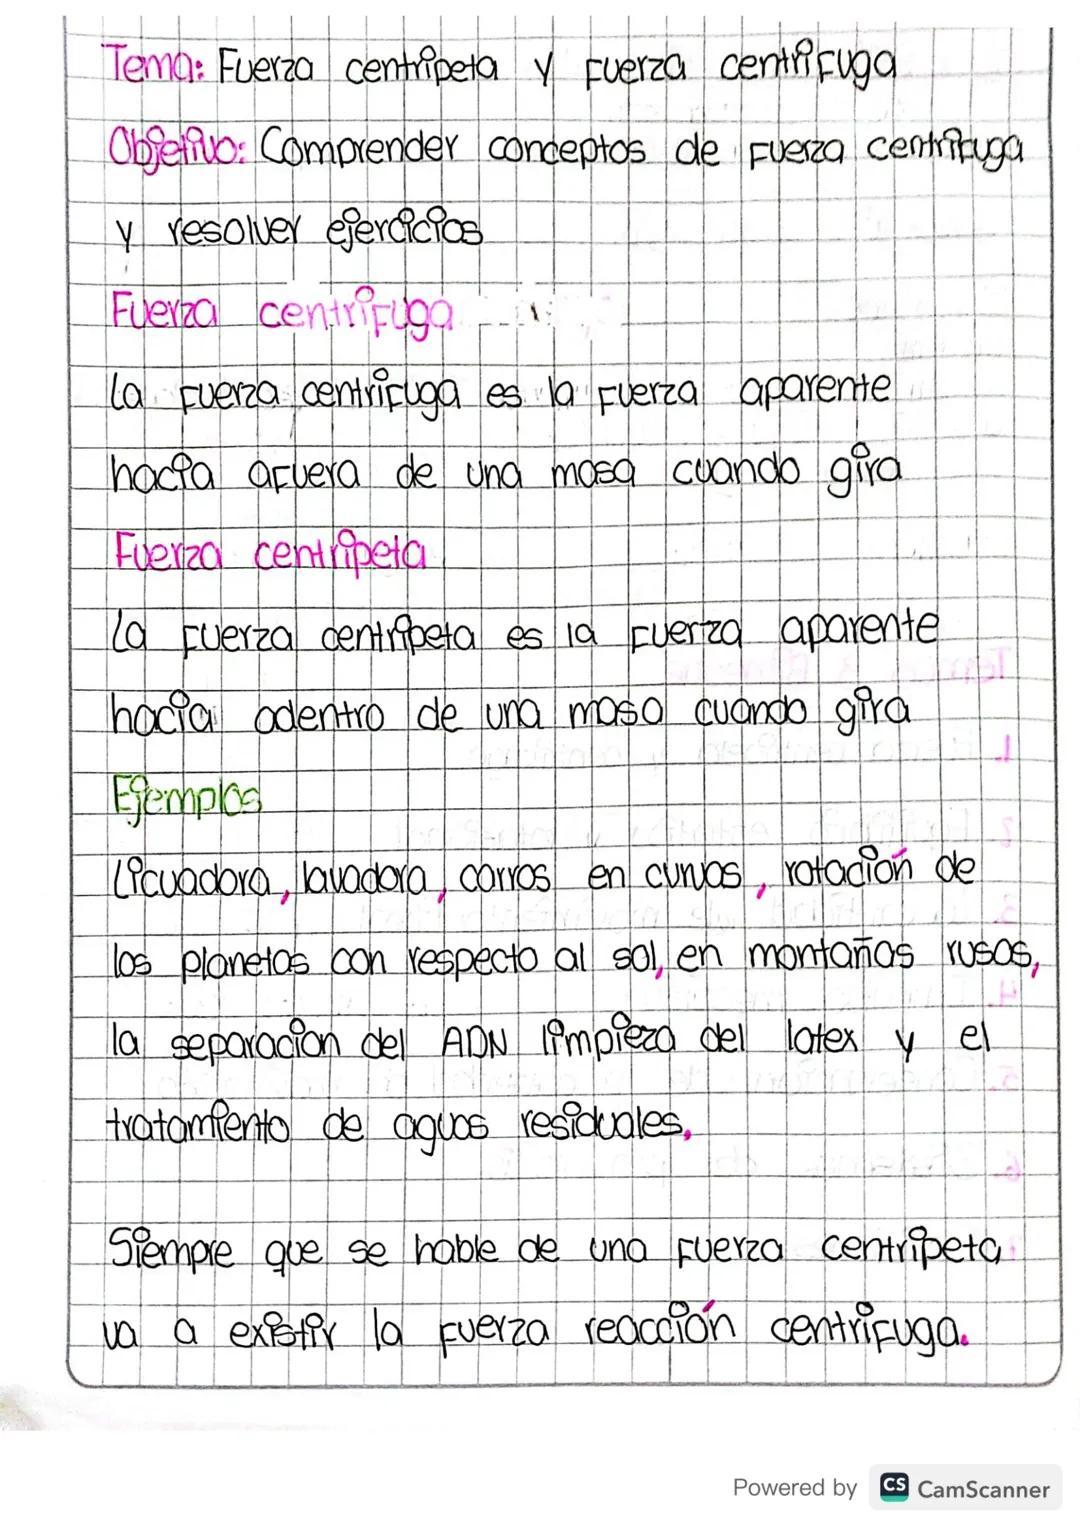 Tema: Fuerza centripeta y fuerza centrifuga
Objetivo: Comprender conceptos de fuerza centrifuga
y resolver ejercicios
Fuerza centrifuga
La fuerza centrifuga es la fuerza aparente
hacia afuera de una masa cuando gira
Fuerza centripeta
La fuerza centripeta es la fuerza aparente
hacia adentro de una masa cuando gira
Ejemplos
Licuadora, lavadora, carros en curvas, rotación de
los planetas con respecto al sol, en montañas rusas,
la separacion del ADN limpieza del latex y el
tratamiento de aguas residuales,
Siempre que se hable de una fuerza centripeta
va a existir la fuerza reacción centrifuga.
Powered by CS CamScanner